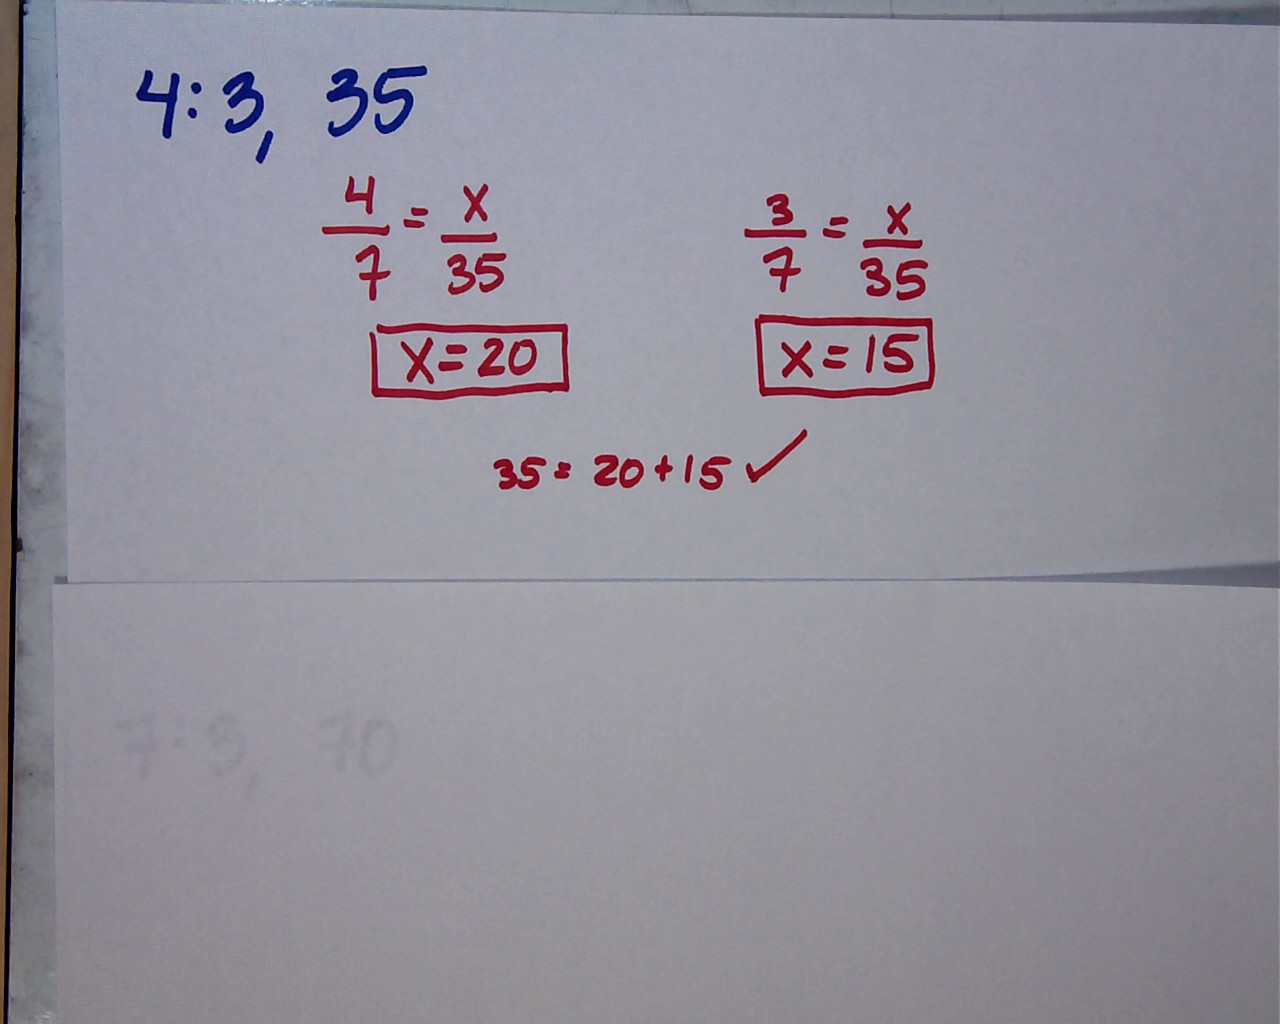 4:3, 35
4/7 = x/35
3/7 = x/35
x=20
x=15
35 = 20+15 ✓
7:3, 70